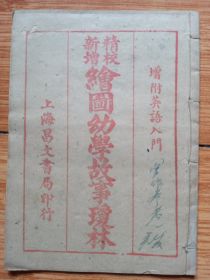 增附英語入門
精校
新增
繪圖幼學故事瓊林
上海昌文會局印行